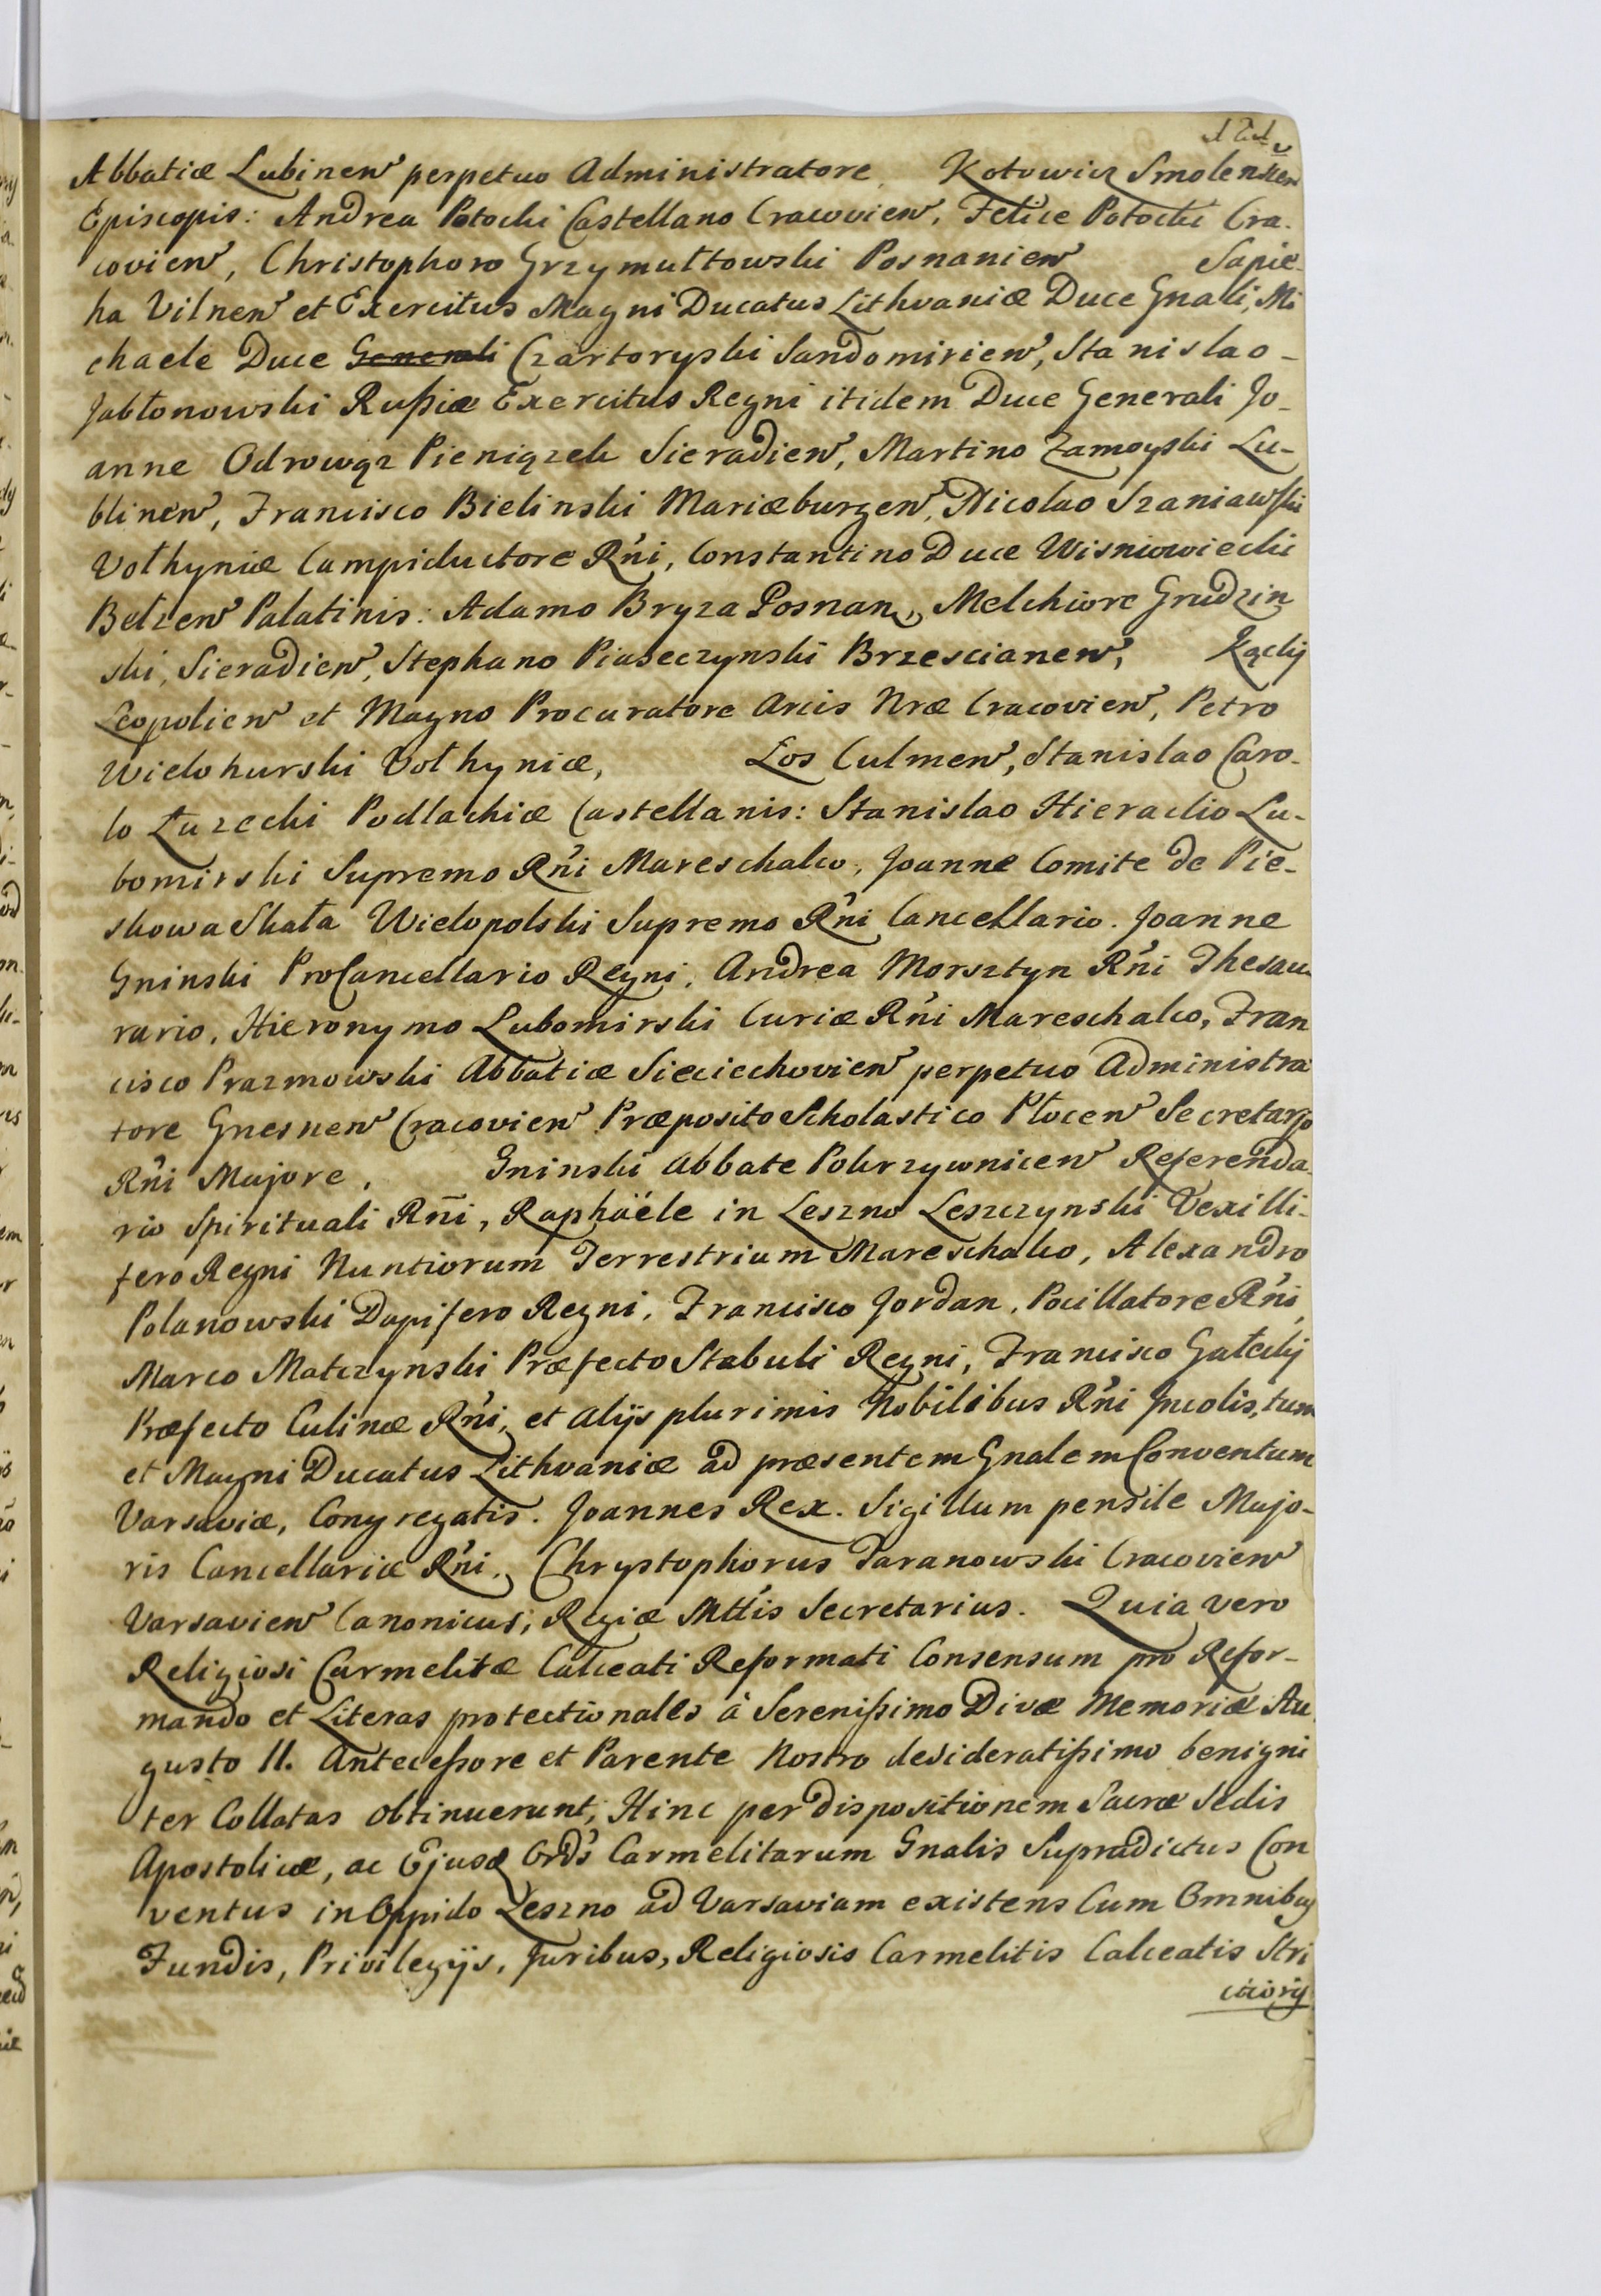 121
Abbatiæ Lubinen perpetuo Administratore, Kotowicz Smolenscen
Episcopis: Andrea Potocki Castellano Cracovien, Felice Potocki Cra-
covien, Christophoro Grzymułtowski Posnanien Sapie-
ha Vilnen et Exercitus Magni Ducatus Lithvaniæ Duce Gnali, Mi
chaele Duce Generali Czartoryski Sandomirien, Stanislao-
Jabłonowski Rußiæ Exercitus Regni itidem Duce Generali Jo-
anne Odrowąz Pieniązek Sieradien, Martino Zamoyski Lu-
blinen, Francisco Bielinski Mariæburgen, Nicolao Szaniawski
Vołhyniæ Campiductore R'ni, Constantino Duce Wisniowiecki
Bełzen Palatinis: Adamo Bryza Posnan, Melchiore Grudzin
ski, Sieradien, Stephano Piaseczynski Brzescianen, Łącky
Leopolien et Magno Procuratore Arcis Nræ Cracovien, Petro
Wielohurski Vołhyniæ, Łos Culmen, Stanislao Caro-
lo Łuzecki Podlachiæ Castellanis: Stanislao Hieraclio Lu-
bomirski Supremo R'ni Mareschalco, Joanne Comite de Pie-
skowa Skała Wielopolski Supremo R'ni Cancellario. Joanne
Gninski ProCancellario Regni, Andrea Morsztyn R'ni Thesau-
rario, Hieronymo Lubomirski Curiæ R'ni Mareschalco, Fran
cisco Prazmowski Abbatiæ Sieciechovien perpetuo Administra
tore Gnesnen Cracovien Præposito Scholastico Płocen Secretario
R'ni Majore, Gninski Abbate Pokrzywnicen Referenda
rio Spirituali Rñi, Raphäéle in Leszno Leszczynski Vexilli-
fero Regni Nuntiorum Terrestrium Mareschalco, Alexandro
Polanowski Dapifero Regni, Francisco Jordan, Pocillatore R'ni,
Marco Matczynski Præfecto Stabuli Regni, Francisco Gałecky
Præfecto Culinæ R'ni, et alijs plurimis Nobilibus R'ni Incolis, tum
et Magni Ducatus Lithvaniæ ad præsentem Gnalem Conventum
Varsaviæ, Congregatis. Joannes Rex. Sigillum pensile Majo-
ris Cancellariæ R'ni. Chrystophorus Taranowski Cracovien
Varsavien Canonicus, Regiæ Mttis Secretarius. Quia vero
Religiosi Carmelitæ Calceati Reformati Consensum pro Refor-
mando et Literas protectionales à Serenißimo Divæ Memoriæ Au
gusto II. Anteceßore et Parente Nostro desideratißimo benigni
ter Collatas obtinuerunt, Hinc per dispositionem Sacræ Sedis
Apostolicæ, ac Ejusq Ord's Carmelitarum Gnalis Supradictus Con
ventus in Oppido Leszno ad Varsaviam existens Cum Omnibus
Fundis, Privilegijs, Juribus, Religiosis Carmelitis Calceatis Stri
ctiorij